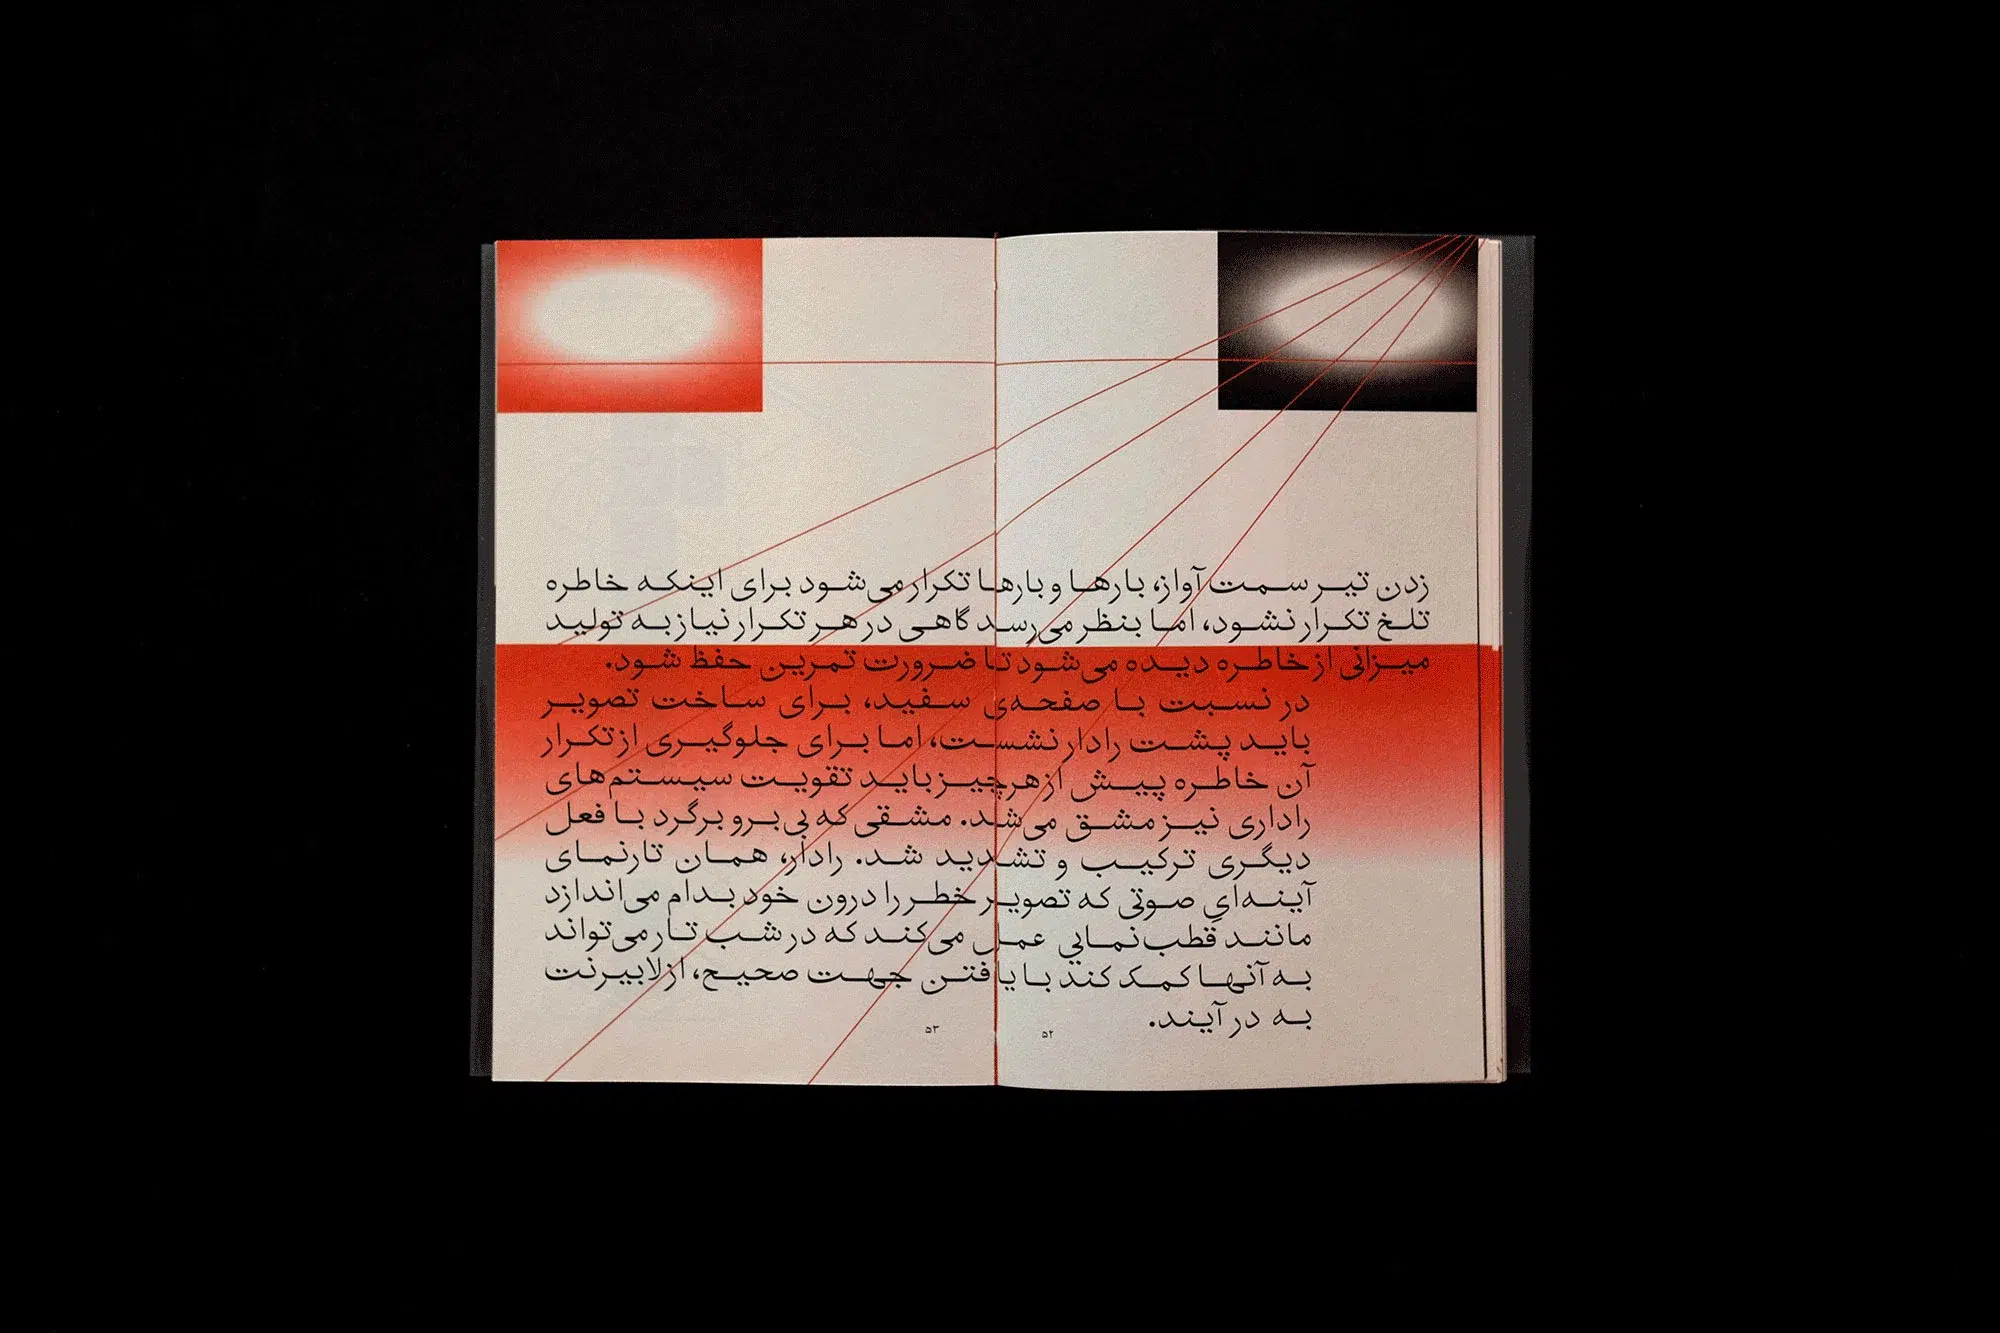 زدن تیر سمت آواز، بارها و بارها تکرار می‌شود برای اینکه خاطره
تلخ تکرار نشود، اما بنظر می‌رسد گاهی در هر تکرار نیاز به تولید
میزانی از خاطره دیده می‌شود تا ضرورت تمرین حفظ شود.
در نسبت با صفحه‌ی سفید، برای ساخت تصویر
باید پشت رادار نشست، اما برای جلوگیری از تکرار
آن خاطره پیش از هرچیز باید تقویت سیستم‌های
راداری نیز مشق می‌شد. مشقی که بی‌برو برگرد با فعل
دیگری ترکیب و تشدید شد. رادار، همان تارنمای
آینه‌ایِ صوتی که تصویر خطر را درون خود بدام می‌اندازد
مانند قطب‌نمایی عمل می‌کند که در شب تار می‌تواند
به آنها کمک کند با یافتن جهت صحیح، از لابیرنت
به در آیند.
۵۲
۵۳